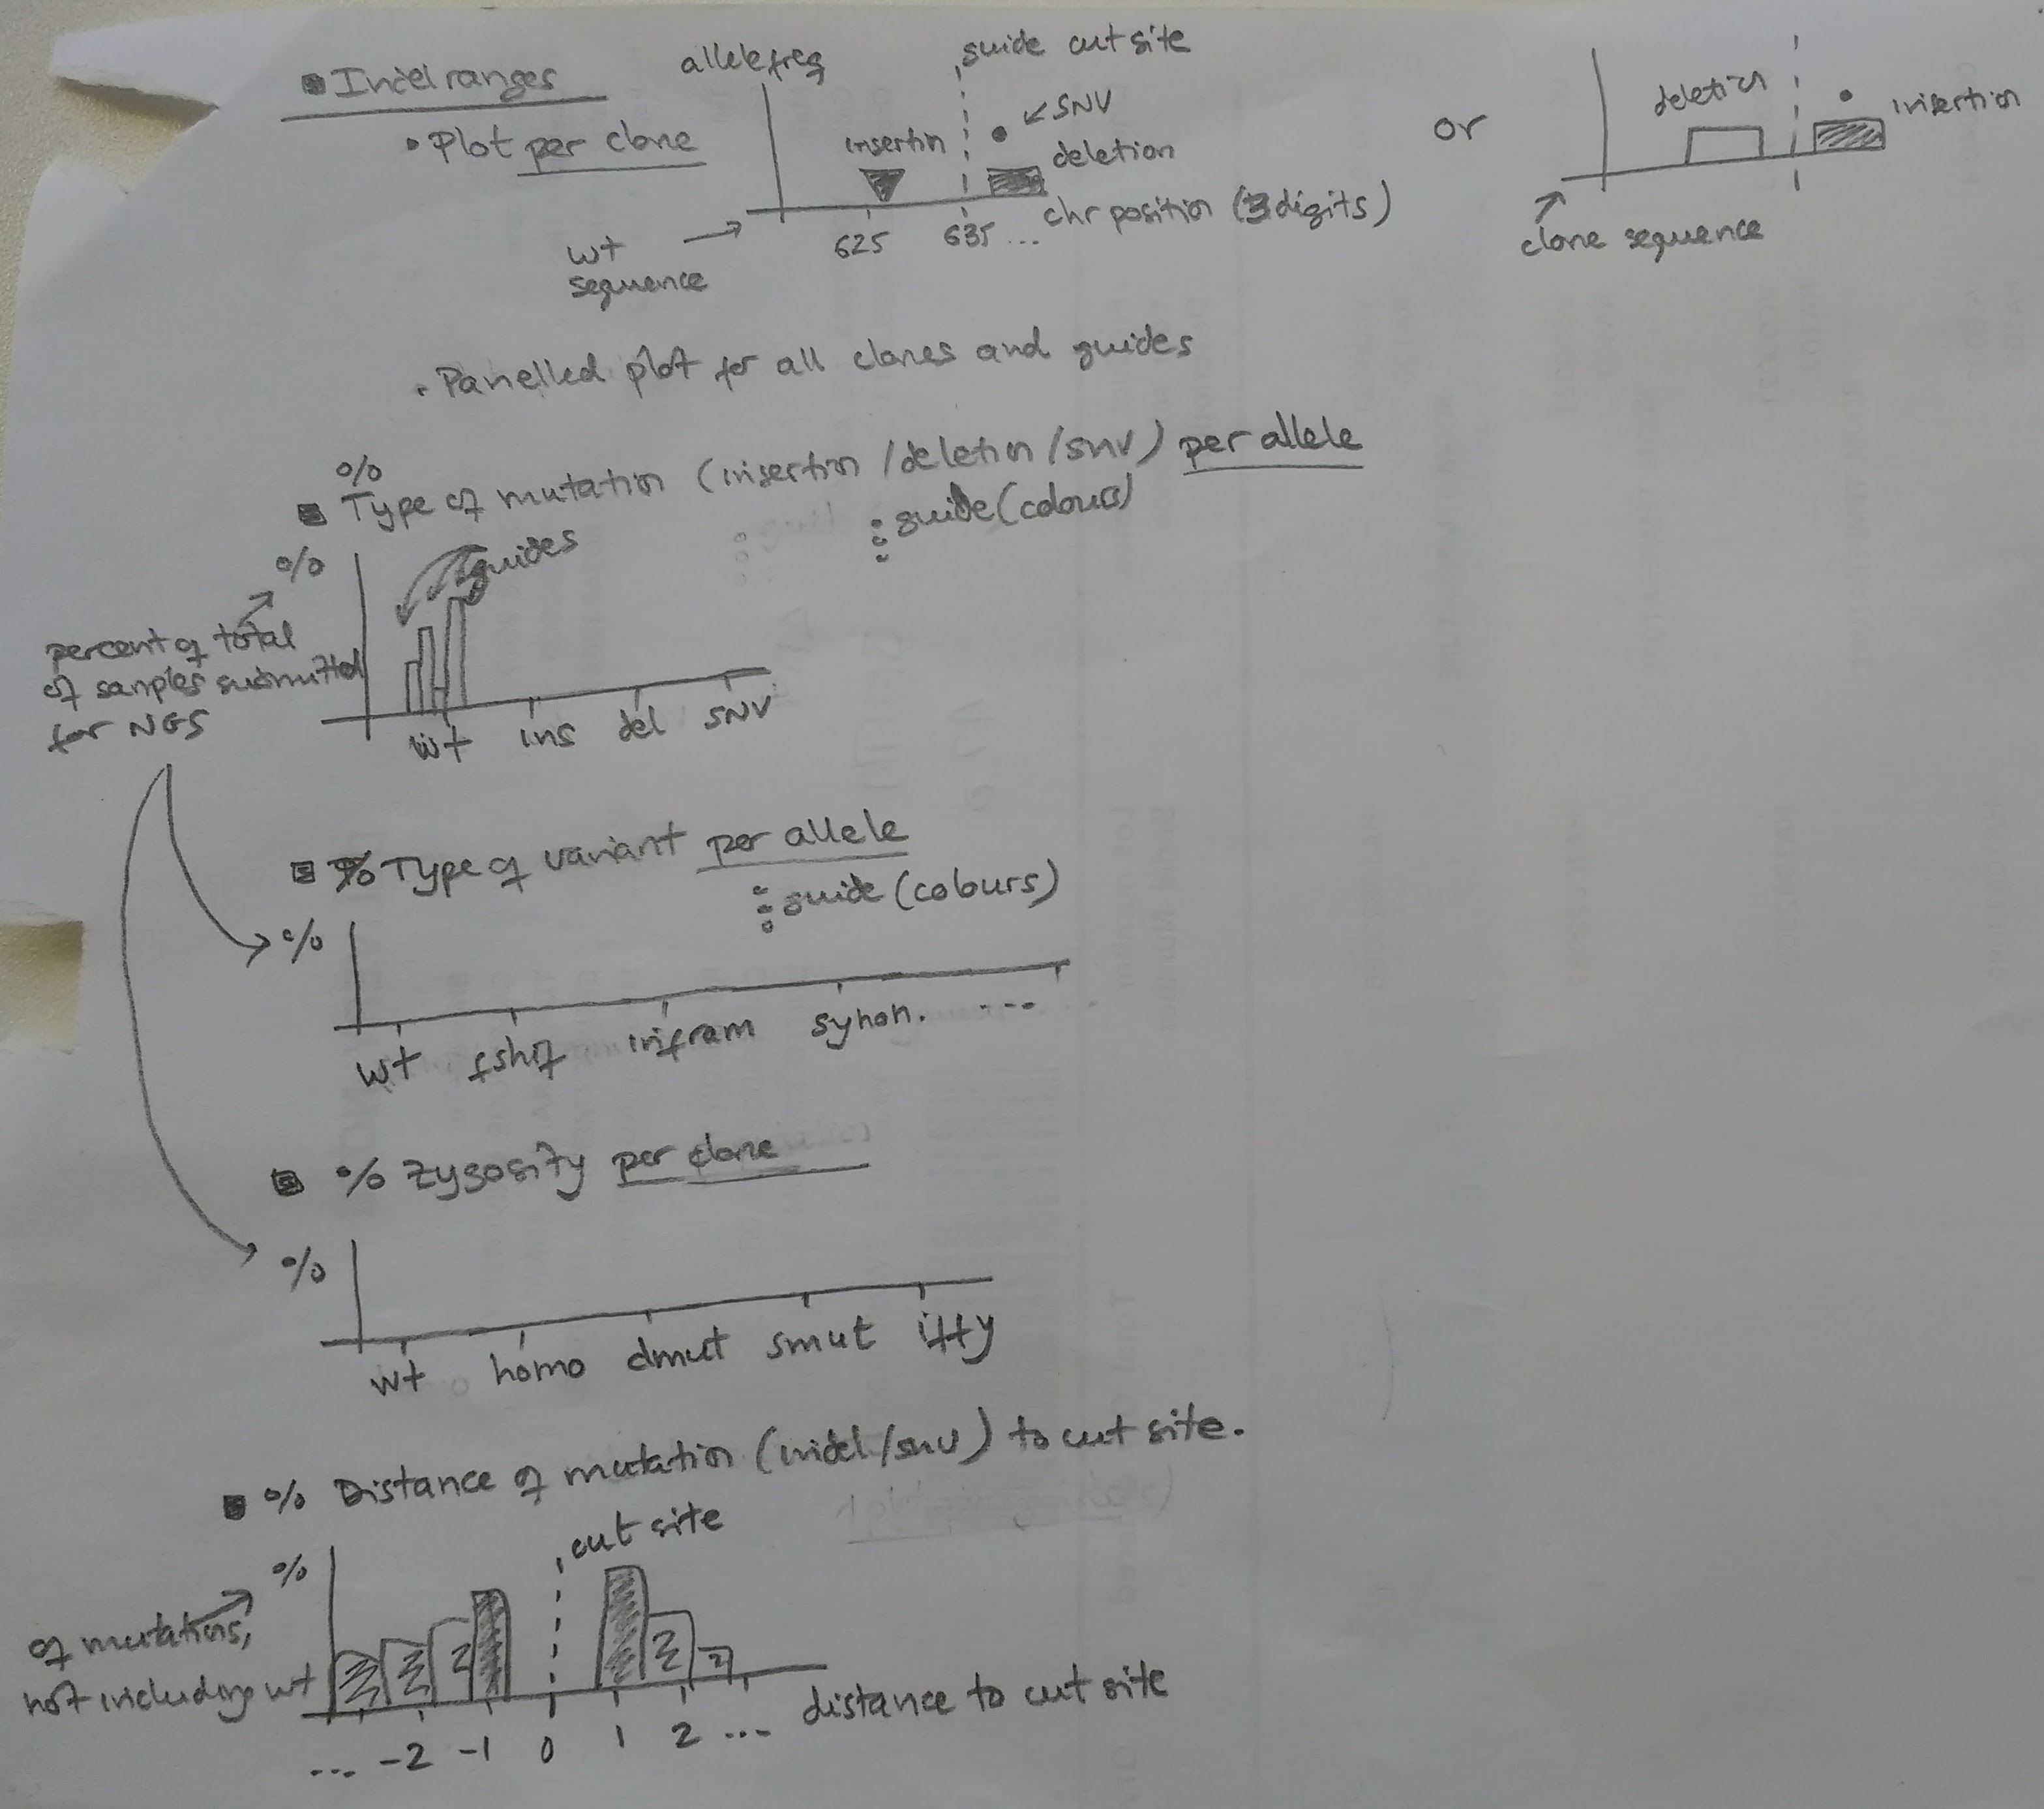 Indel ranges
• Plot per clone
allele freq
guide cut site
insertin
SNV
deletion
625 635 ... chr position (3 digits)
wt
sequence
or
deletion
insertion
clone sequence
• Panelled plot for all clones and guides
%
Type of mutation (insertion /deletion /snv) per allele
: guide (colours)
%
guides
percent of total
of samples submitted
for NGS
wt ins del SNV
% Type of variant per allele
: guide (colours)
%
wt fshif infram synon. ....
% zygosity per clone
%
wt homo dmut smut iffy
% Distance of mutation (indel/snv) to cut site.
cut site
%
of mutations,
not including wt
... -2 -1 0 1 2 ... distance to cut site